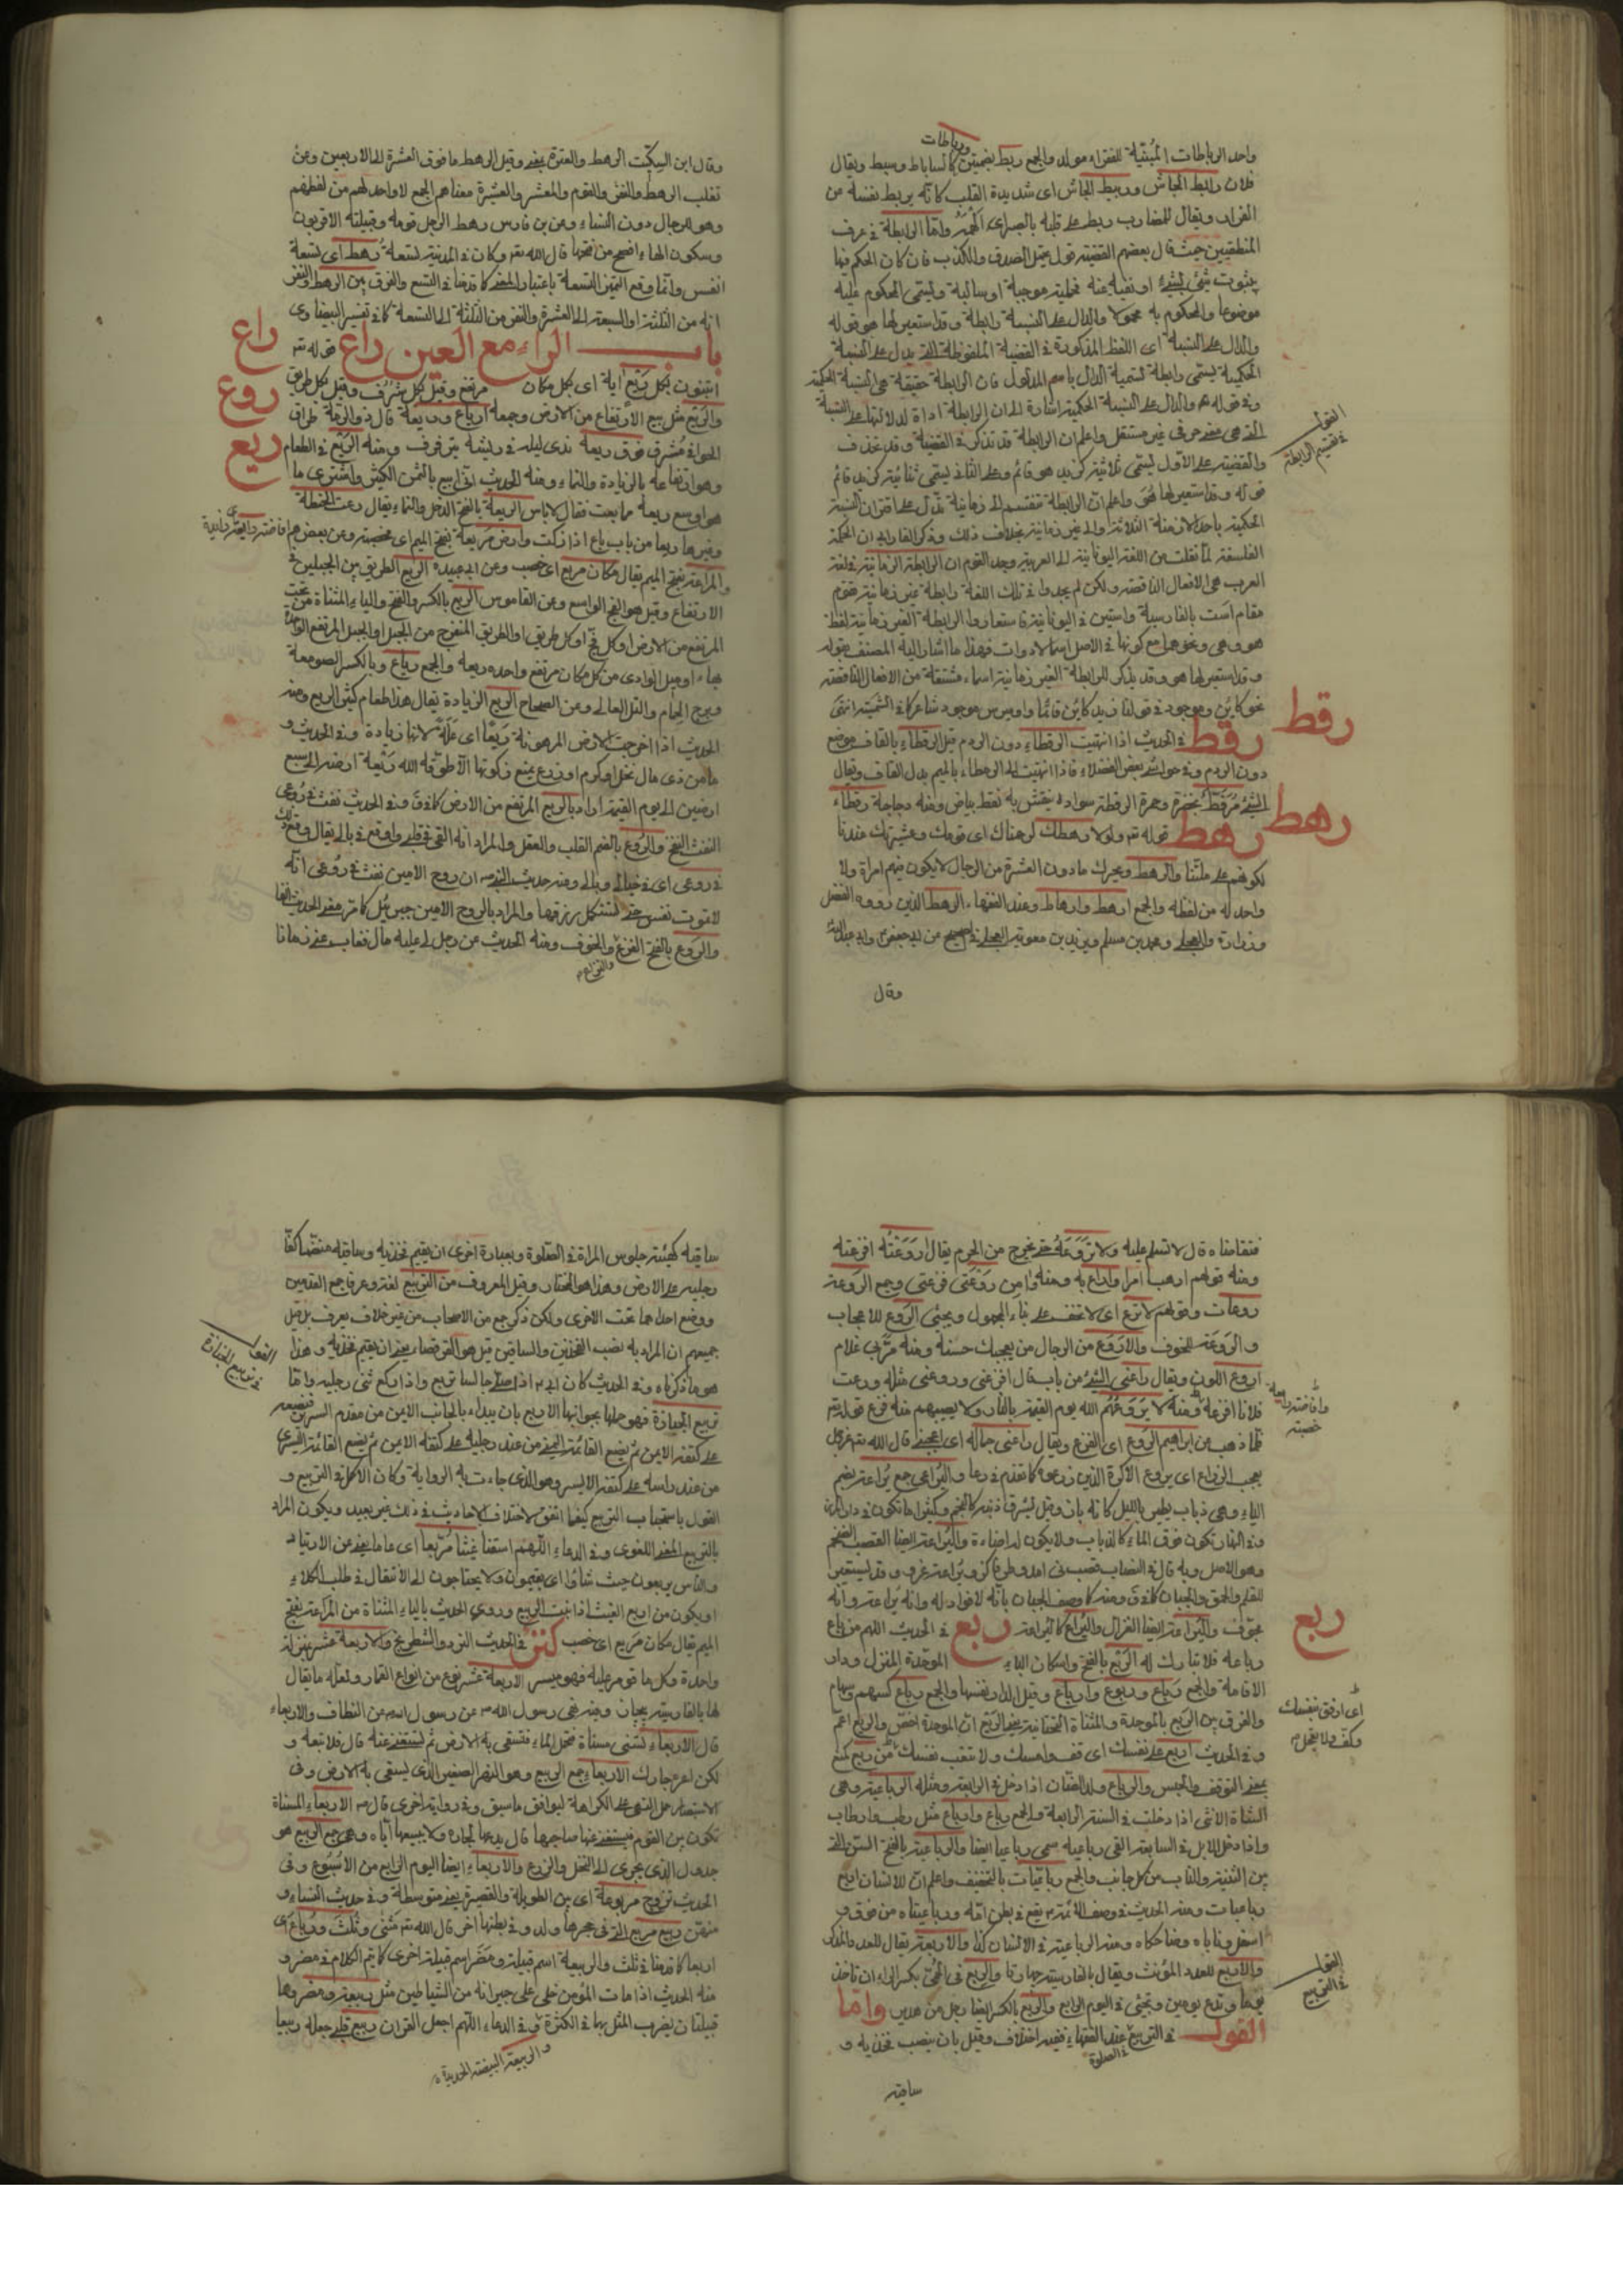 ورباطات
واحد الرباطات المبنية للفقراء مولد والجمع ربط بضمتين كالساباط وسيط ويقال
فلان رابط الجاش وربيط الجاش اى شديدة القلب كانه يربط نفسه من
الفرار ويقال للمضارب ربط على قلبه بالصبر اى الهمه واما الرابطة فى عرف
المنطقيين حيث قال بعضهم القضية قول يحتمل الصدق والكذب فان كان الحكم فيها
بثبوت شئ لشئ او نفيه عنه فحملية موجبة او سالبة ويسمى المحكوم عليه
موضوعا والمحكوم به محمولا والدال على النسبة رابطة وقد استعير لها هو قوله
والدال على النسبة اى اللفظ المذكورة فى القضية الملفوظة التى يدل على النسبة
الحكمية يسمى رابطة تسمية الدال باسم المدلول فان الرابطة حقيقة هى النسبة الحكمية
وفى قوله والدال على النسبة الحكمية اشارة الى ان الرابطة اداة لدلالتها على النسبة
التى هى معنى حرفى غير مستقل واعلم ان الرابطة قد تذكر فى القضية وقد تحذف
القول فى تقسيم الرابطة
والقضية على الاول يسمى ثلاثية كزيد هو قائم وعلى الثانى يسمى ثنائية كزيد قائم
قوله وقد استعير لها هو واعلم ان الرابطة تنقسم الى زمانية تدل على اقتران النسبة
الحكمية باحد الازمنة الثلاثة والى غير زمانية بخلاف ذلك وذكر الفارابى ان الحكمة
الفلسفة لما نقلت من اللغة اليونانية الى العربية وجد القوم ان الرابطة الزمانية فى لغة
العرب هى الافعال الناقصة ولكن لم يجدوا فى تلك اللغة رابطة غير زمانية تقوم
مقام است بالفارسية واستين فى اليونانية فاستعاروا الرابطة الغير زمانية لفظة
هو وهى ونحوهما مع كونها فى الاصل اسما لا ادوات فهذا ما اشار اليه المصنف بقوله
وقد استعير لها هو وقد يذكر للرابطة الغير زمانية اسماء مشتقة من الافعال الناقصة
نحو كاين وموجود فى قولنا زيد كاين قائما واوميرس موجود شاعرا كذا فى الشمسية انتهى
رقط
رقط فى الحديث اذا انتهيت الرقطاء دون الردم قيل الرقطاء بالقاف موضع
دون الردم وفى حواشى بعض الفضلاء فاذا انتهيت الى الرمطاء بالميم بدل القاف ويقال
الشئ مرقط بخضرة وحمرة الرقطة سواد ينقش به نقط بياض ومنه دجاجة رقطاء
رهط
رهط قوله تعه ولولا رهطك لرجمناك اى قومك وعشيرتك عندنا
لكونهم على ملتنا والرهط ويحرك مادون العشرة من الرجال لا يكون فيهم امراة ولا
واحد له من لفظه والجمع ارهط وارهاط وعند الفقهاء الرهط الذين رووه الفضل
وزرارة والعجلى ومحمد بن مسلم ويزيد بن معوية العجلى فى الصحيح عن ابى جعفر وابى عبدالله
وقال
وقال ابن السكيت الرهط والعترة بمعنى وقيل الرهط مافوق العشرة الى الاربعين وعن
ثعلب الرهط والنفر والقوم والمعشر والعشيرة معناهم الجمع لا واحد لهم من لفظهم
وهو للرجال دون النساء وعن بن فارس رهط الرجل قومه وقبيلته الاقربون
وسكون الهاء افصح من فتحها قال الله تعه وكان فى المدينة تسعة رهط اى تسعة
انفس وانما وقع التميز التسعة باعتبار المعنى كما قدمنا فى التسع والفرق بين الرهط والنفر
انه من الثلثة او السبعة الى العشرة والنفر من الثلثة الى التسعة كما فى تفسير البيضاوى
باب الراء مع العين راع قوله تعه
راع
اتبنون بكل ريع اية اى بكل مكان مرتفع وقيل بكل شرف وقيل بكل طريق
روع
والريع مثل بيع الارتفاع من الارض وجمعه ارياع وريعة قال ذو الرمة طراق
ريع
الخوافى مشرف فوق ريعة ندى ليله فى ريشه يترقرق ومنه الريع فى الطعام
وهو ارتفاعه بالزيادة والنماء ومنه الحديث انى ابيع بالثمن الكثير واشترى ما
هو اوسع ريعة مما بعت فقال لاباس الريعة بالفتح الدخل والنماء يقال رعت الحنطة
وغيرها ريعا من باب باع اذا زكت وارض مريعة بفتح الميم اى مخصبة وعن بعضهم
والمراعة بفتح الميم يقال مكان مريع اى خصب وعن ابى عبيدة الريع الطريق بين الجبلين فى
الارتفاع وقيل هو الفج الواسع وعن القاموس الريع بالكسر والفتح والياء المثناة من تحت
المرتفع من الارض او كل فج او كل طريق او الطريق المنفرج من الجبل او الجبل المرتفع الواحدة
بهاء او مسيل الوادى من كل مكان مرتفع واحده ريعة والجمع رياع وبالكسر الصومعة
وبرج الحمام والتل العالى وعن الصحاح الريع الزيادة يقال هذا طعام كثير الريع ومنه
الحديث اذا اخرجت الارض المرهونة ريعا اى غلة لانها زيادة وفى الحديث و
مامن ذى مال نخل او كرم او زرع يمنع زكوتها الا طوقه الله ريعة ارضه الى سبع
ارضين الى يوم القيمة اراد بالريع المرتفع من الارض كما فى ق وفى الحديث نفث فى روعى
النفث النفخ والروع بالضم القلب والعقل والمراد انه القى فى قلبى واوقع فى بالى يقال وقع ذلك
فى روعى اى فى خيالى وبالى ومنه حديث النبى ص ان روح الامين نفث فى روعى انه
لا تموت نفس حتى تستكمل رزقها والمراد بالروح الامين جبرئيل كما مر معنى الحديث
والروع بالفتح الفزع والخوف ومنه الحديث عن رجل لى عليه مال فغاب عنى زمانا
فتقامناه قال لا تسلم عليه ولا تروعه حتى يخرج من الحرم يقال اروعته افزعته
ومنه قولهم ارهب امرا واراع به ومنه وامن روعتى فزعتى وجمع الروعة
روعات وقولهم لا ترع اى لا تخف على بناء المجهول ويجئى الروع للاعجاب
والروعة للخوف والاروع من الرجال من يعجبك حسنه ومنه مر بى غلام
اروع اللون ويقال راعنى الشئ من باب قال افزعنى وروعنى مثله ورعت
فلانا افزعه ومنه لا يروعهم الله يوم القيمة بالنار ولا يصيبهم منه فزع قوله تعه
فلما ذهب عن ابراهيم الروع اى الفزع ويقال راعنى جماله اى اعجبنى قال الله تعه عز وجل
يعجب الزراع اى يروع الاكرة الذين زرعوه كما تقدم فى رعا واليراع جمع يراعة بضم
الياء وهى ذباب يطير بالليل كانه نار وقيل يشرق ذنبه كالنجم
وفى النهار تكون فوق الماء كالذباب ولا يكون له اضاءة واليراعة ايضا القصب الضخم
ربع
ربع فى الحديث اللهم من باع
رباعه فلا تبارك له الربع بالفتح واسكان الباء الموحدة المنزل ودار
الاقامة والجمع رباع وربوع وارباع وقيل الدار نفسها والجمع رباع كسهم وسهام
والفرق بين الربع بالموحدة والمثناة التحتانية يعنى الريع ان الموحدة اخص والريع اعم
اى ارفق بنفسك
وكف ولا تعجل
وفى الحديث اربع على نفسك اى قف وامسك ولا تتعب نفسك من ربع كمنع
بمعنى التوقف والحبس والرباع ولد الضان اذا دخل فى الرابعة ومثله الرباعية وهى
الشاة الانثى اذا دخلت فى السنة الرابعة والجمع رباع وارباع مثل رطب وارطاب
واذا دخل الابل فى السابعة القى رباعيه سمى رباعيا ايضا والرباعية بالفتح السن التى
بين الثنية والناب من كل جانب والجمع رباعيات بالتخفيف واعلم ان للانسان اربع
رباعيات ومنه الحديث فى وصف الائمة يقع فى بطن امه ورباعيتاه من فوق و
اسفل وناباه وضاحكاه ومنه الرباعية فى الانسان كذا والاربعة يقال للعدد المذكر
القول فى التربيع
والاربع للعدد المؤنث ويقال بالفارسية چهارتا والربع فى الحمى بكسر الراء ان تاخذ
يوما وتدع يومين وتجئى فى اليوم الرابع والربع بالكسر ايضا رجل من هذيل واما
القول فى التربيع عند الفقهاء ففيه اختلاف وقيل بان ينصب فخذيه و
فى الصلوة
ساقيه
ساقيه كهيئة جلوس المراة فى الصلوة وبعبارة اخرى ان يقيم فخذيه وساقيه
رجليه على الارض وهذا هو المختار وقيل المعروف من التربيع لغة وعرفا جمع القدمين
ووضع احدهما تحت الاخرى ولكن ذكر جمع من الاصحاب من غير خلاف يعرف بل قيل
القول فى تربيع الجنازة
جميعهم ان المراد به نصب الفخذين والساقين قيل هو القرفصاء يعنى ان يقيم فخذيه وهذا
هو ما ذكرناه وفى الحديث كان ابى ع اذا صلى جالسا تربع واذا ركع ثنى رجليه واما
تربيع الجنازة فهو حملها بجوانبها الاربع بان يبداء بالجانب الايمن من مقدم السرير فيضعه
على كتفه الايمن ثم يضع القائمة اليمنى من عند رجليه على كتفه الايمن ثم يضع القائمة اليسرى
من عند راسه على كتفه الايسر وهو الذى جاءت به الرواية وكان الاكمل فى التربيع و
القول باستحباب التربيع كيفما اتفق لاختلاف الاحاديث فى ذلك غير بعيد ويكون المراد
بالتربيع المعنى اللغوى وفى الدعاء اللهم اسقنا غيثا مربعا اى عاما يغنى عن الارتياد
والناس يربعون حيث شاؤا اى يقيمون ولا يحتاجون الى الانتقال فى طلب الكلاء
او يكون من اربع الغيث اذا نبت الربيع وروى الحديث بالياء المثناة من المراعة بفتح
الميم يقال مكان مريع اى خصب فى الحديث النرد والشطرنج والاربعة عشر بمنزلة
واحدة وكل ما قومر عليه فهو ميسر الاربعة عشر نوع من انواع القمار ولعله ما يقال
لها بالفارسية ومنه نهى رسول الله ص عن النطاف والاربعاء
قال الاربعاء تسنى مسناة فتحمل الماء فتسقى به الارض ثم تستغنى عنه قال فلا تبعه و
لكن اعره جارك الاربعاء جمع الربيع وهو النهر الصغير الذى يسقى به الارض وفى
الاستبصار حمل النهى على الكراهة ليوافق ما سبق وفى رواية اخرى قال ص الاربعاء المسناة
تكون بين القوم فيستغنى عنها صاحبها قال يدعها لجاره ولا يبيعها اياه وهى جمع الربيع هو
جدول الذى يجرى الى النخل والزرع والاربعاء ايضا اليوم الرابع من الاسبوع وفى
الحديث تزوج مربوعة اى بين الطويلة والقصيرة يعنى متوسطة وفى حديث النساء و
منهن ربيع مربع التى فى حجرها ولد وفى بطنها اخر قال الله تعه مثنى وثلث ورباع اى
اربعا كما قدمنا فى ثلث والربيعة اسم قبيلة ومضر اسم قبيلة اخرى كما يتم الكلام فى مضر و
منه الحديث اذا مات المؤمن خلى على جيرانه من الشياطين مثل ربيعة ومضر وهما
قبيلتان يضرب المثل بهما فى الكثرة وفى الدعاء اللهم اجعل القران ربيع قلبى جعله ربيعا
والربيعة البيضة الحديد